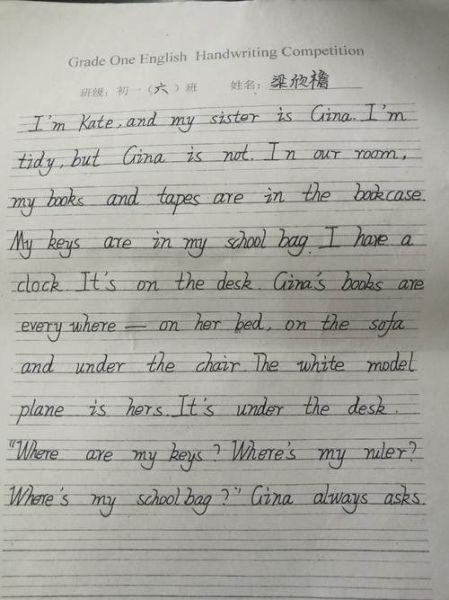 Grade One English Handwriting Competition
班级：初一（六）班 姓名：梁欣襜
I'm Kate, and my sister is Gina. I'm
tidy, but Gina is not. In our room,
my books and tapes are in the bookcase.
My keys are in my school bag. I have a
clock. It's on the desk. Gina's books are
every where — on her bed, on the sofa
and under the chair. The white model
plane is hers. It's under the desk.
"Where are my keys? Where's my ruler?
Where's my school bag?" Gina always asks.